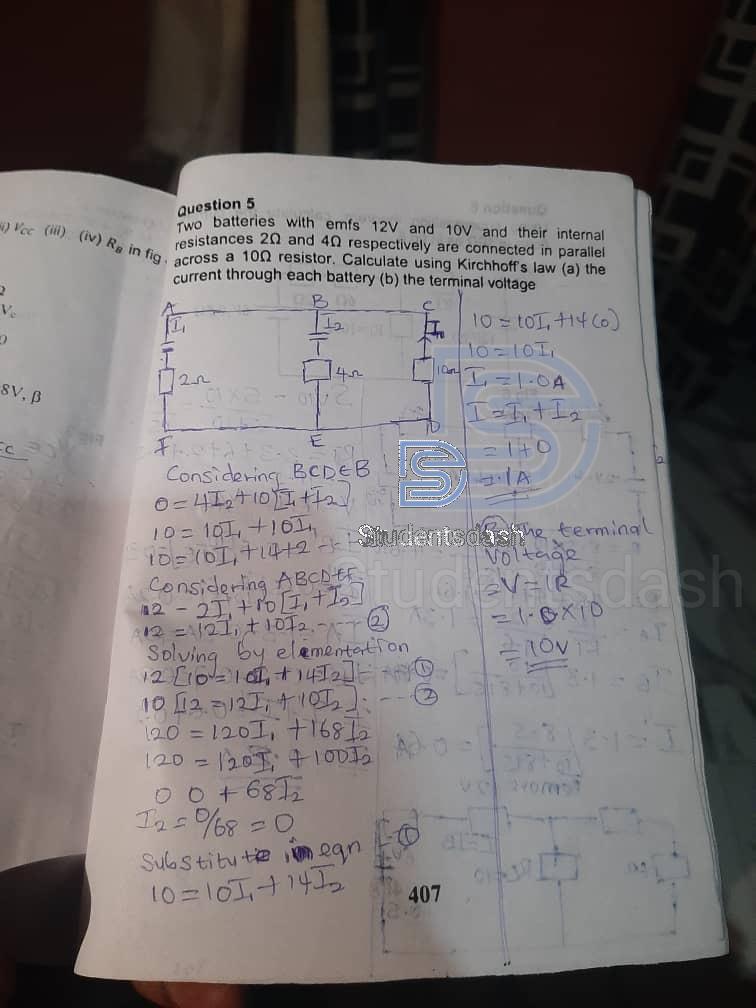 i) Vcc (iii) (iv) RB in fig.
8V, β
Question 5
Two batteries with emfs 12V and 10V and their internal
resistances 2Ω and 4Ω respectively are connected in parallel
across a 10Ω resistor. Calculate using Kirchhoff's law (a) the
current through each battery (b) the terminal voltage
A B C
I1 I2
2Ω 4Ω 10Ω
F E D
Considering BCDEB
0 = 4I2 + 10[I1 + I2]
10 = 10I1 + 10I1
10 = 10I1 + 14 + 2
Considering ABCDEF
12 - 2I1 + 10[I1 + I2]
12 = 12I1 + 10I2 --- (2)
Solving by elementation
12[10 = 10I1 + 14I2] --- (1)
10[12 = 12I1 + 10I2] --- (2)
120 = 120I1 + 168I2
120 = 120I1 + 100I2
0 0 + 68I2
I2 = 0/68 = 0
Substitute in eqn (1)
10 = 10I1 + 14I2
10 = 10I1 + 14(0)
10 = 10I1
I1 = 1.0A
I = I1 + I2
= 1 + 0
= 1A
(B) The terminal
voltage
= V = IR
= 1.0 × 10
= 10V
Studentsdash
Studentsdash
407